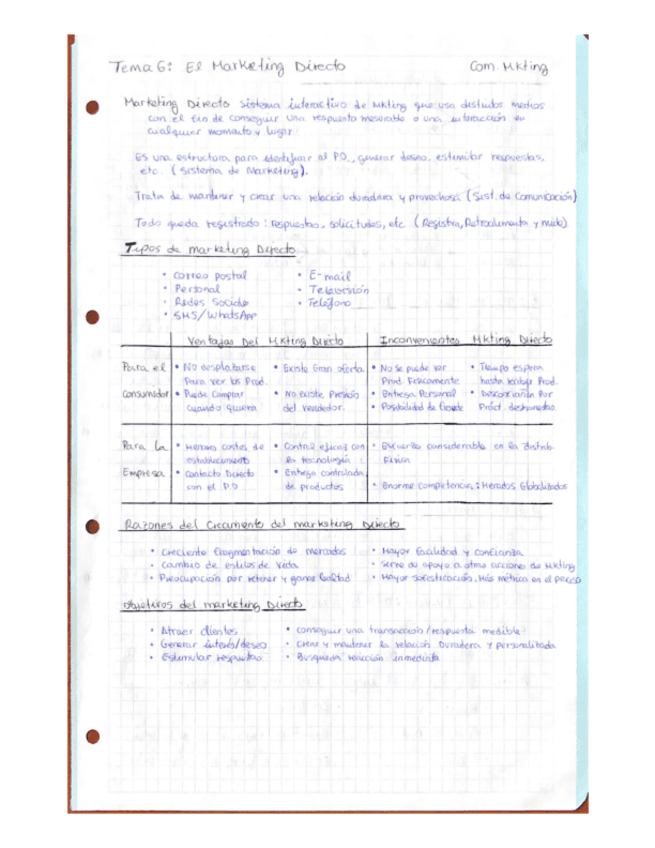 Tema 6: El Marketing Directo Com. Mkting
Marketing Directo Sistema interactivo de Mkting que usa distintos medios
con el fin de conseguir una respuesta mesurable o una interacción en
cualquier momento y lugar
Es una estructura para identificar al P.O., generar deseo, estimular respuestas,
etc. (Sistema de Marketing).
Trata de mantener y crear una relación duradera y provechosa (Sist. de Comunicación)
Todo queda registrado: respuestas, solicitudes, etc (Registra, Retroalimenta y mide)
Tipos de marketing Directo
• Correo postal • E-mail
• Personal • Televisión
• Redes Sociales • Teléfono
• SMS/WhatsApp
Ventajas Del Mkting Directo Inconvenientes Mkting Directo
Para el • No desplazarse • Existe Gran oferta • No se puede ver • Tiempo espera
Para ver los Prod. Prod. Físicamente hasta recibir Prod.
Consumidor • Puede Comprar • No existe Presión • Entrega Personal • Desconfianza Por
cuando quiera del vendedor. • Posibilidad de fraude Práct. deshonestas
Para la • Menores costes de • Control eficaz con • Esfuerzo considerable en la distrib.
establecimiento la tecnología Física
Empresa • Contacto Directo • Entrega controlada
con el P.O de productos • Enorme competencia: Mercados Globalizados
Razones del Crecimiento del marketing Directo
• Creciente fragmentación de mercados • Mayor facilidad y confianza
• Cambio de estilos de vida • Sirve de apoyo a otras acciones de Mkting
• Preocupación por retener y ganar lealtad • Mayor sofisticación, Más métrica en el proceso
Objetivos del marketing Directo
• Atraer clientes • Conseguir una transacción/respuesta medible
• Generar interés/deseo • Crear y mantener la relación Duradera y personalizada
• Estimular respuestas • Búsqueda reacción inmediata